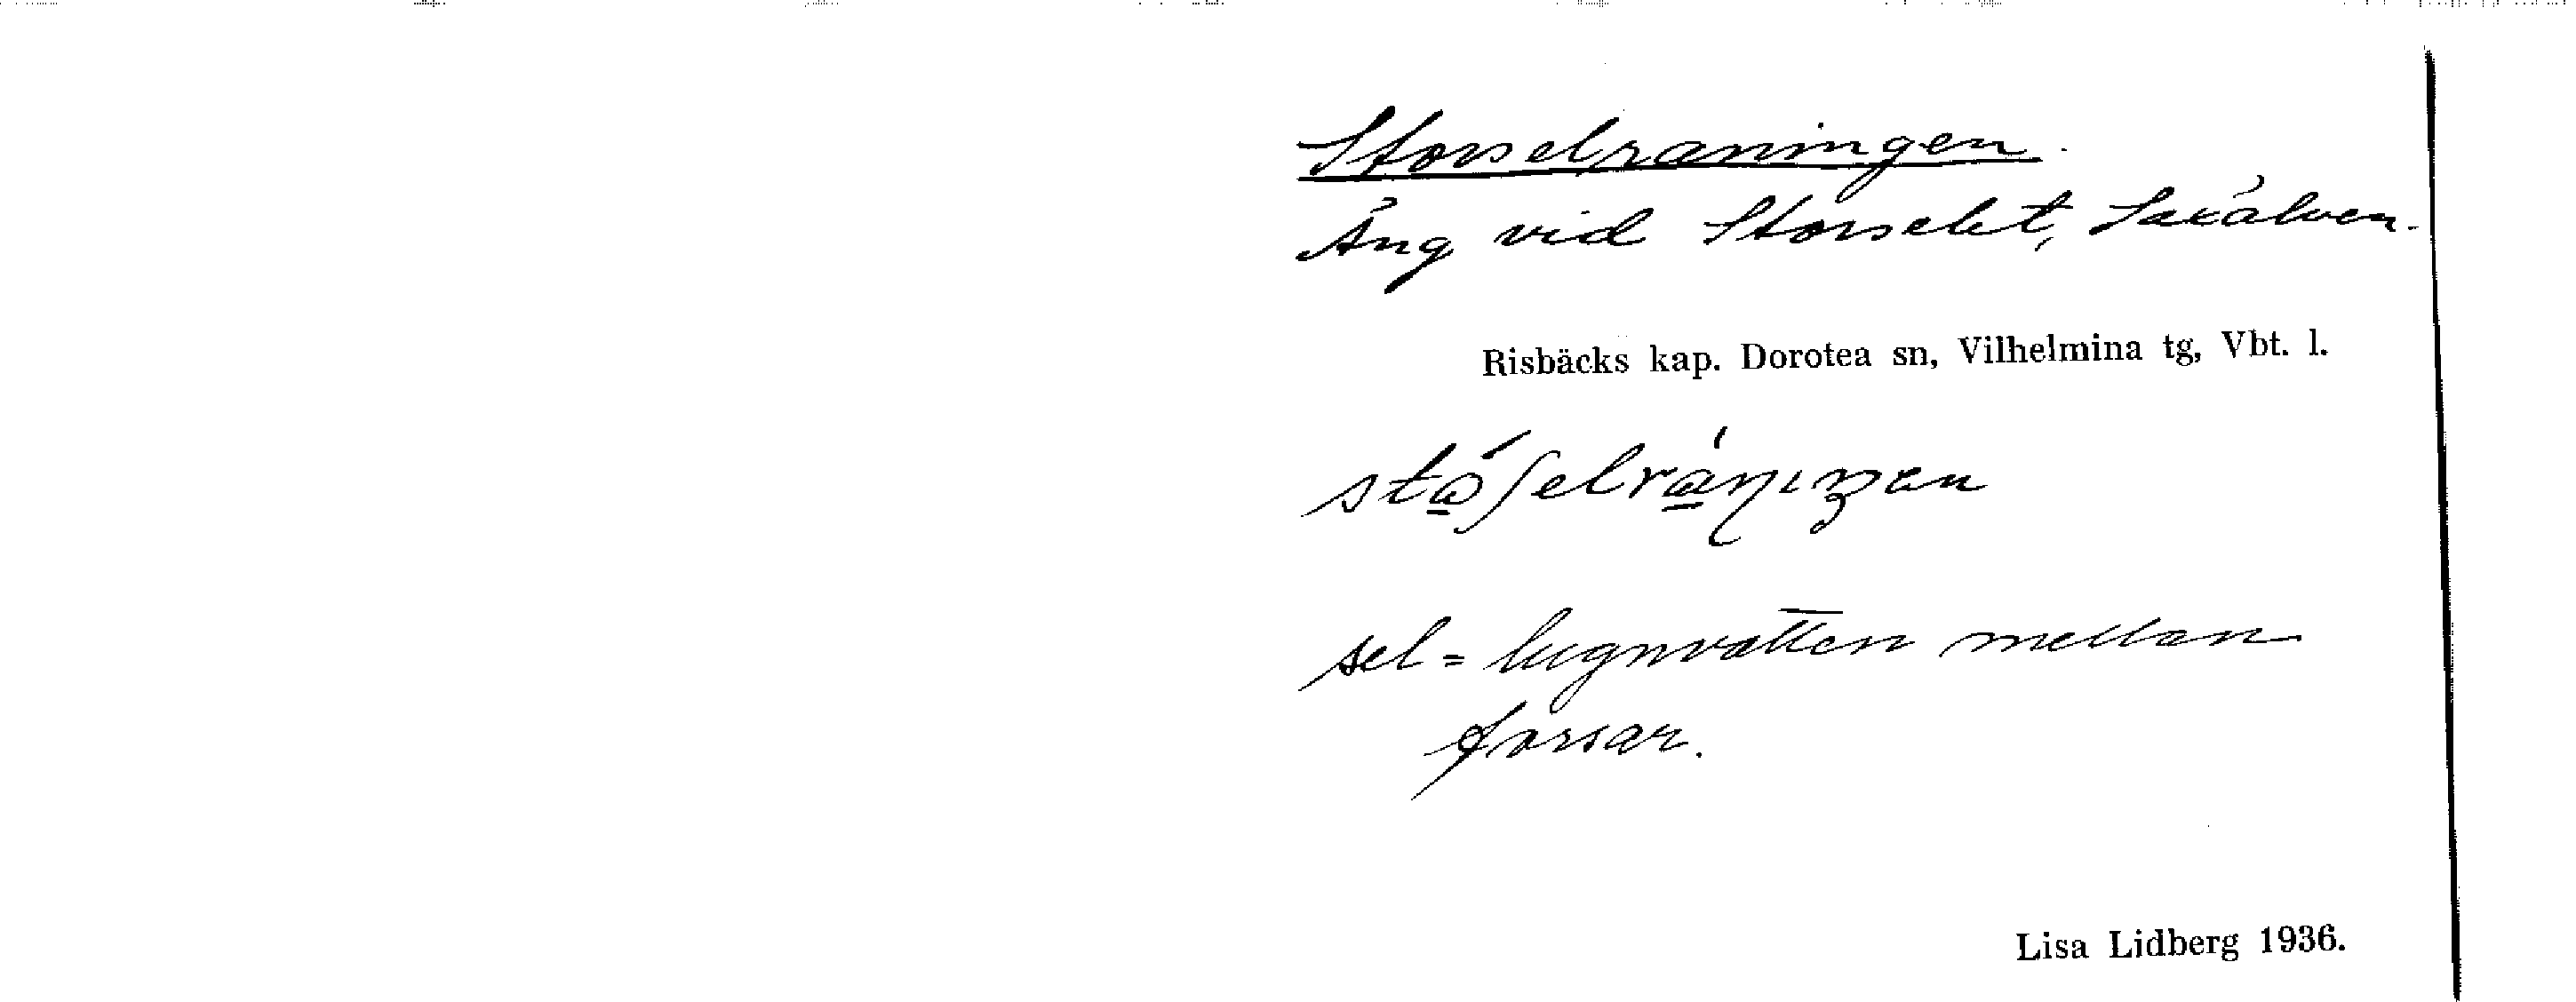 Storselraningen.
Äng vid Storselet, Saxälven.
Risbäcks kap. Dorotea sn, Vilhelmina tg, Vbt. l.
sel = lugnvatten mellan
forsar.
Lisa Lidberg 1936.